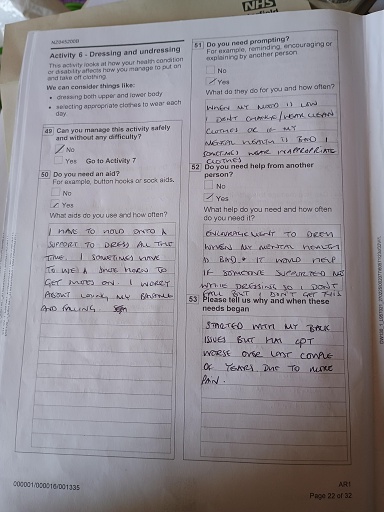 NHS
Activity 6 - Dressing and undressing
This activity looks at how your health condition
or disability affects how you manage to put on
and take off clothing.
We can consider things like:
• dressing both upper and lower body
• selecting appropriate clothes to wear each
day.
49 Can you manage this activity safely
and without any difficulty?
No
Yes Go to Activity 7
50 Do you need an aid?
For example, button hooks or sock aids.
No
Yes
What aids do you use and how often?
I HAVE TO HOLD ONTO A
SUPPORT TO DRESS ALL THE
TIME. I SOMETIMES HAVE
TO USE A SHOE HORN TO
GET SHOES ON. I WORRY
ABOUT LOSING MY BALANCE
AND FALLING
51 Do you need prompting?
For example, reminding, encouraging or
explaining by another person.
No
Yes
What do they do for you and how often?
WHEN MY MOOD IS LOW
I DON'T CHANGE/WEAR CLEAN
CLOTHES OR IF MY
MENTAL HEALTH IS BAD I
SOMETIMES WEAR INAPPROPRIATE
CLOTHES
52 Do you need help from another
person?
No
Yes
What help do you need and how often
do you need it?
ENCOURAGEMENT TO DRESS
WHEN MY MENTAL HEALTH
IS BAD. IT WOULD HELP
IF SOMEONE SUPPORTED ME
WHILE DRESSING SO I DON'T
FALL BUT I DON'T GET THIS
53 Please tell us why and when these
needs began
STARTED WITH MY BACK
ISSUES BUT HAS GOT
WORSE OVER LAST COUPLE
OF YEARS DUE TO MORE
PAIN.
000001/000016/001335
AR1
Page 22 of 32